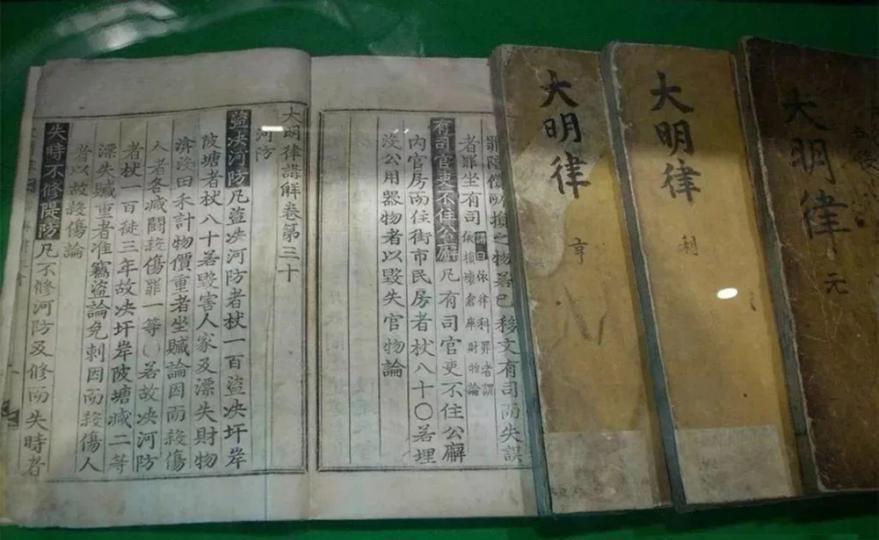 罪陪償所損之物若已移文有司而失誤
者罪坐有司講曰依律科罪者謂
依損壞倉庫財物論
有司官吏不住公廨凡有司官吏不住公廨
內官房而住街市民房者杖八十〇若埋
沒公用器物者以毀失官物論
大明律講解卷第三十
河防
盜決河防凡盜決河防者杖一百盜決圩岸
陂塘者杖八十若毀害人家及漂失財物
渰沒田禾計物價重者坐贓論因而殺傷
人者各減鬪殺傷罪一等〇若故決河防
者杖一百徒三年故決圩岸陂塘減二等
漂失贓重者准竊盜論免刺因而殺傷人
者以故殺傷論
失時不修隄防凡不修河防及修而失時者
大明律
元
大明律
利
大明律
亨